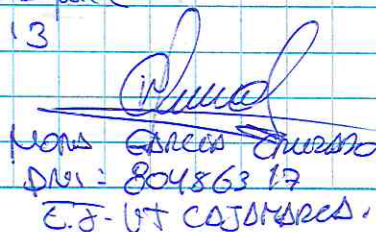 13
MONA GARCIA CRUZADO
DNI = 80486317
E.J - UT CAJAMARCA.